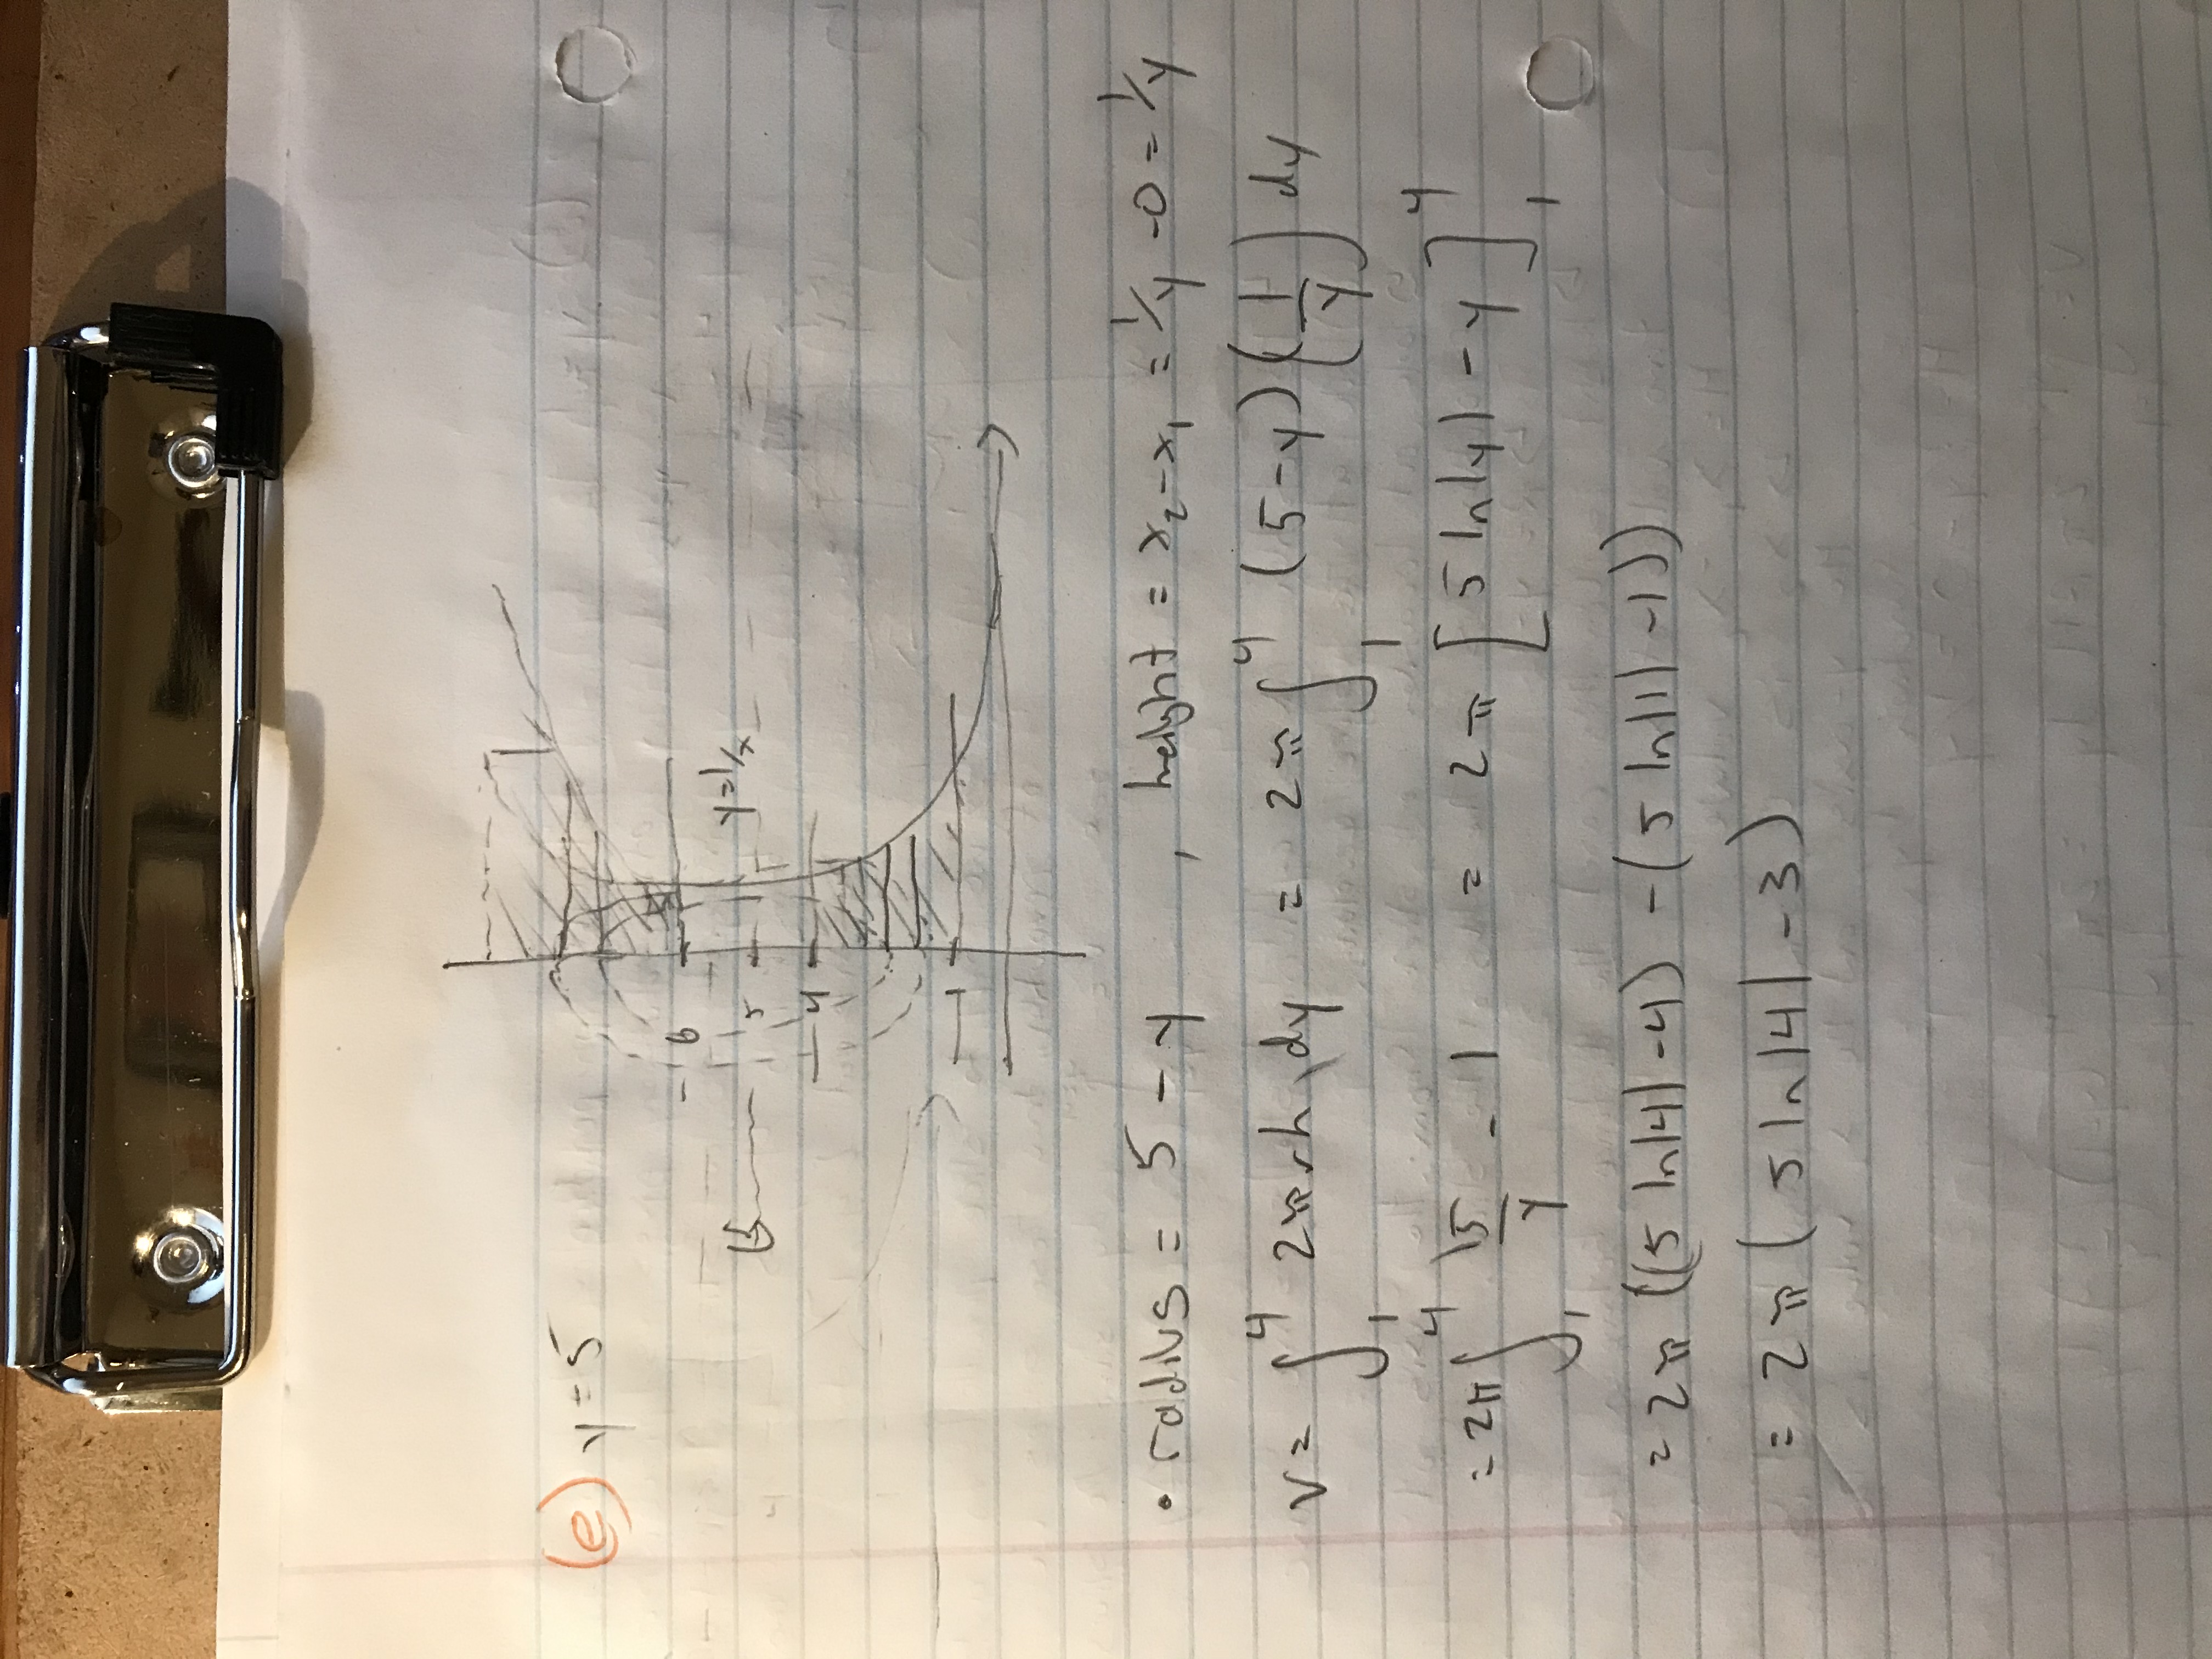 (e) y=5
6
5 y=1/x
4
1
• radius = 5 - y , height = x₂-x₁ = 1/y - 0 = 1/y
V = ∫₁⁴ 2πrh dy = 2π ∫₁⁴ (5-y)(1/y) dy
= 2π ∫₁⁴ 5/y - 1 = 2π [5 ln|y| - y]₁⁴
= 2π ((5 ln|4| - 4) - (5 ln|1| - 1))
= 2π ( 5 ln|4| - 3 )